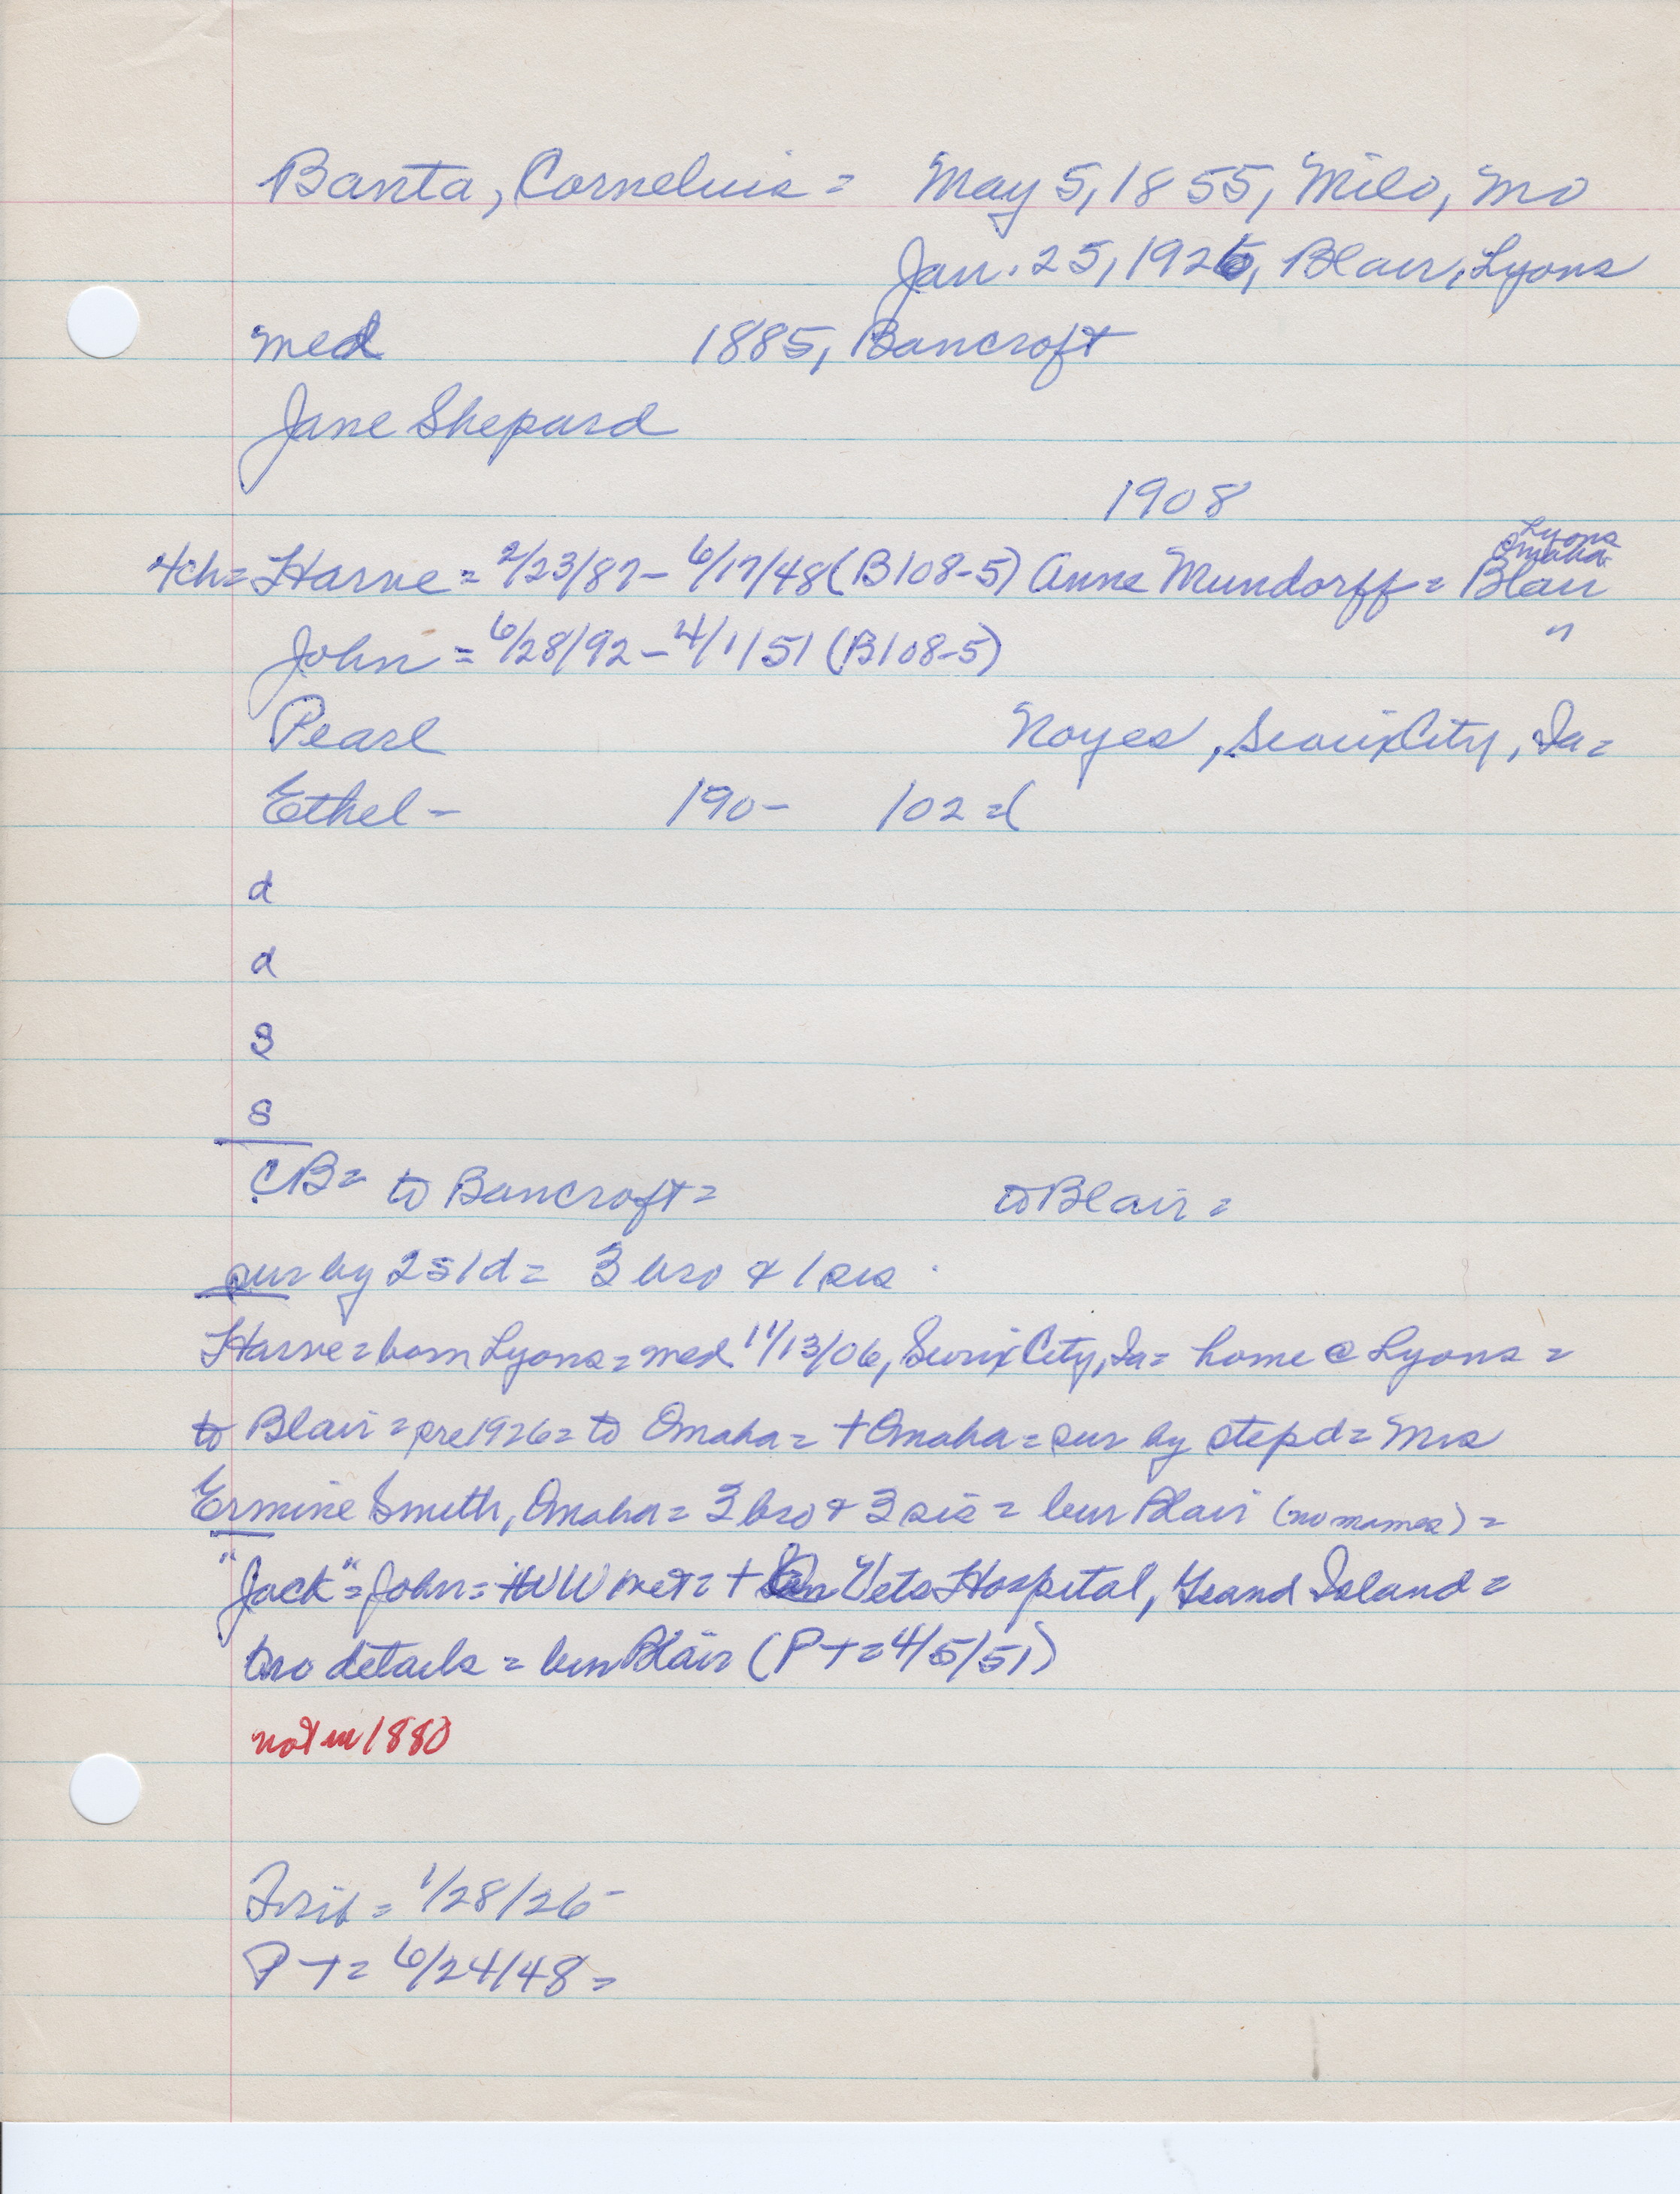 Banta, Cornelius = May 5, 1855, Milo, Mo
Jan. 25, 1926, Blair, Lyons
med 1885, Bancroft
Jane Shepard
1908
Lyons
Omaha
4ch = Harve = 2/23/87 - 6/17/48 (B108-5) Anne Mundorff = Blair
John = 6/28/92 - 4/1/51 (B108-5) "
Pearl Noyes, Sioux City, Ia =
Ethel - 190- 102 = (
d
d
s
s
CB = to Bancroft = to Blair =
sur by 2s 1d = 3 bro & 1 sis
Harve = born Lyons = med 11/13/06, Sioux City, Ia = home @ Lyons =
to Blair = pre 1926 = to Omaha = + Omaha = sur by step d = Mrs
Ermine Smith, Omaha = 3 bro & 3 sis = bur Blair (no names) =
"Jack" = John = WW vet = + Vets Hospital, Grand Island =
no details = bur Blair (PT = 4/5/51)
not in 1880
Trib = 1/28/26
PT = 6/24/48 =